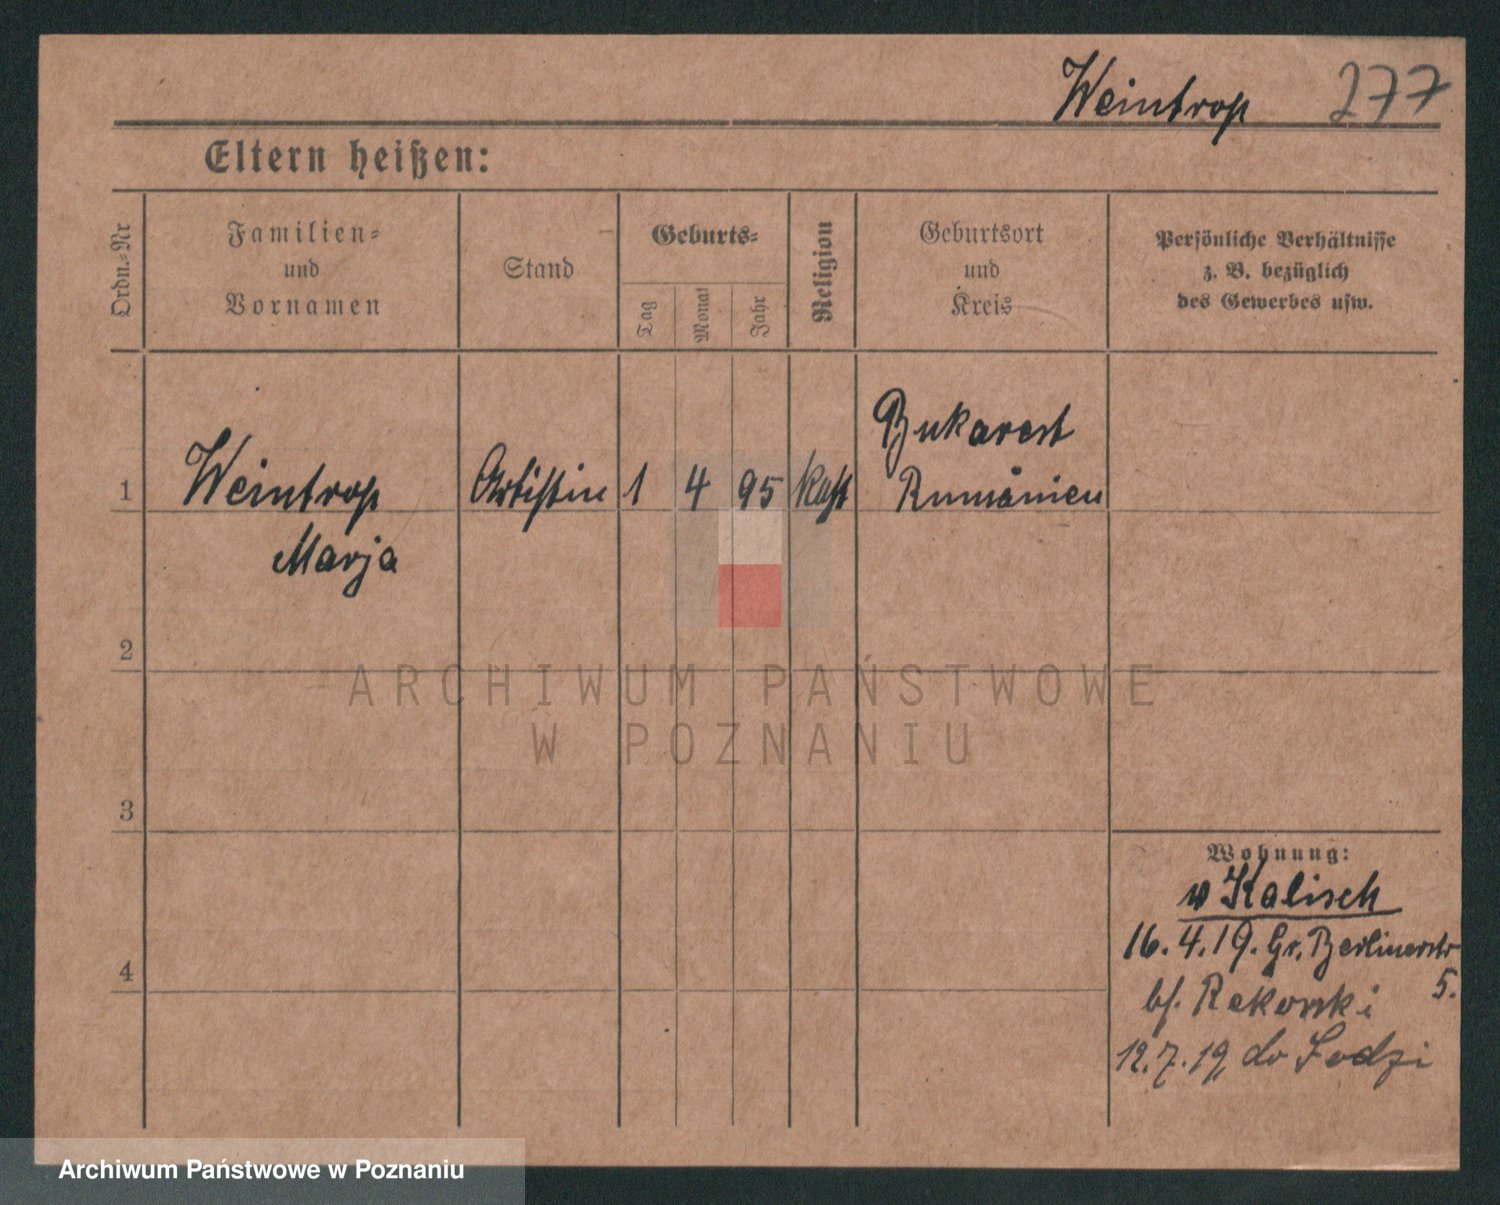 Weintrop 277
Eltern heißen:
Ordn.-Nr
Familien-
und
Vornamen
Stand
Geburts-
Tag
Monat
Jahr
Religion
Geburtsort
und
Kreis
Persönliche Verhältnisse
z. B. bezüglich
des Gewerbes usw.
Bukarest
1 Weintrop Artistin 1 4 95 kath Rumänien
Marja
2
3
4
Wohnung:
v Kalisch
16.4.19. Gr. Berlinerstr
5.
bf. Rakowski
12.7.19 do Łodzi
ARCHIWUM PAŃSTWOWE
W POZNANIU
Archiwum Państwowe w Poznaniu